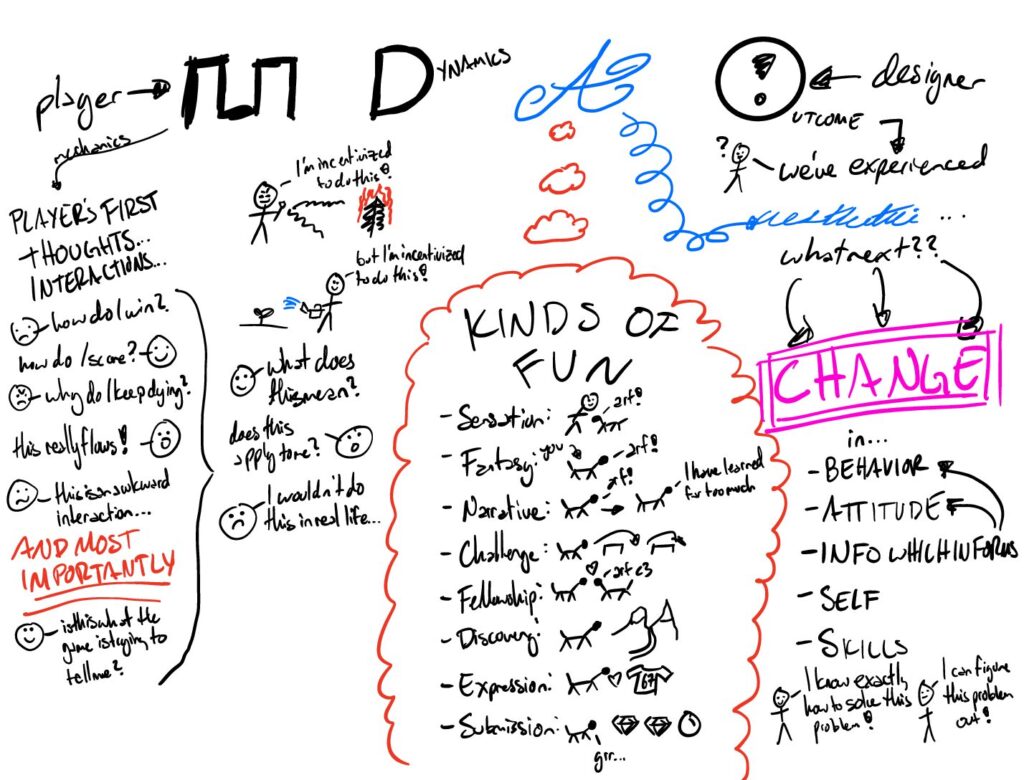 player
M
DYNAMICS
A
OUTCOME
designer
mechanics
PLAYER'S FIRST
THOUGHTS...
INTERACTIONS...
how do I win?
how do I score?
why do I keep dying?
this really flows!
this is an awkward
interaction...
AND MOST
IMPORTANTLY
is this what the
game is trying to
tell me?
I'm incentivized
to do this!
but I'm incentivized
to do this!
what does
this mean?
does this
apply to me?
I wouldn't do
this in real life...
KINDS OF
FUN
- Sensation: arf!
- Fantasy: you arf!
- Narrative: arf! I have learned
far too much
- Challenge:
- Fellowship: arf <3
- Discovery:
- Expression: 67
- Submission:
grr...
?
we've experienced
aesthetic ...
what next??
CHANGE
in...
- BEHAVIOR
- ATTITUDE
- INFO WHICH INFORMS
- SELF
- SKILLS
I know exactly
how to solve this
problem!
I can figure
this problem
out!